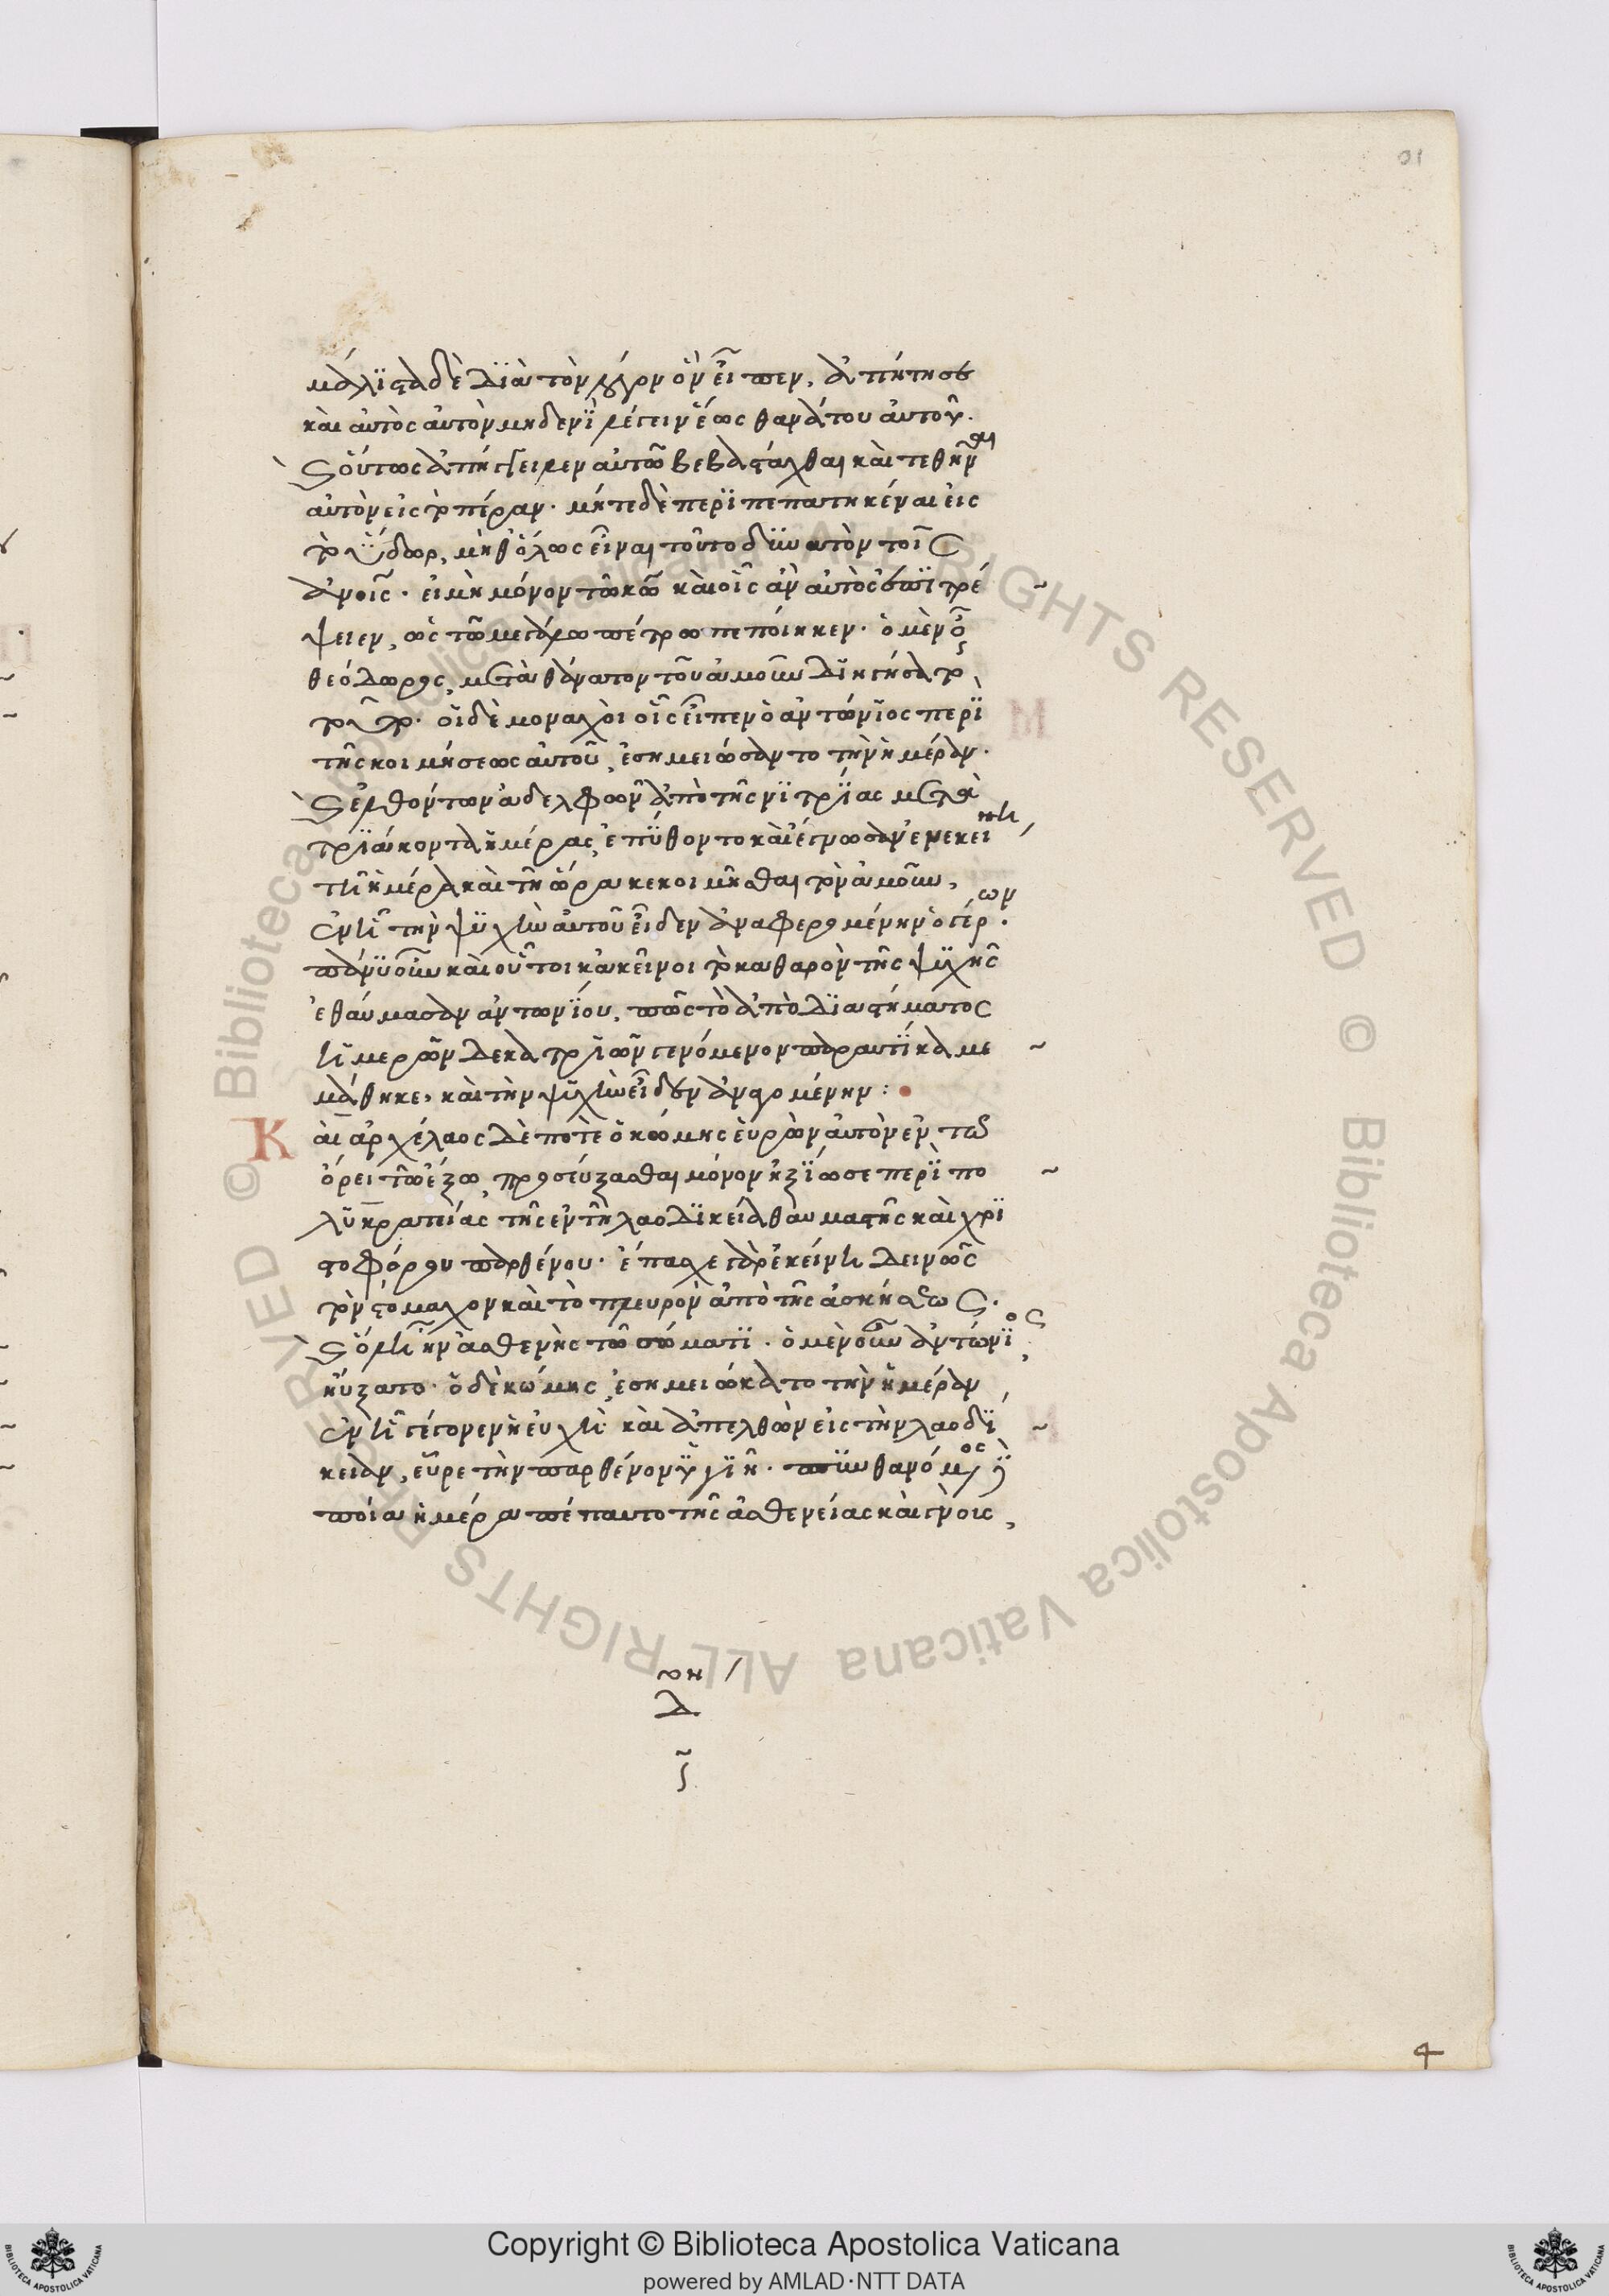 91
μάλϊστα δὲ δϊὰ τὸν λόγον ὃν εἶπεν, ἀπήτησε
καὶ αὐτὸς αὐτὸν μηδενὶ λέγειν ἕως θανάτου αὐτοῦ.
καὶ οὕτως ἀπήγγειλεν αὐτῶ βεβαστάχθαι καὶ τεθῆναι
αὐτὸν εἰς τὸ πέραν. μήτε δὲ περϊπεπατηκέναι εἰς
τὸ ὕδωρ, μὴ θ' ὅλως εἶναι τοῦτο δυνατὸν τοῖς
ἀνοις. εἰ μὴ μόνον τῶ κω καὶ οἷς ἂν αὐτὸς ἐπϊτρέ
ψειεν, ὡς τῶ μεγάλω πέτρω πεποίηκεν. ὁ μὲν οὖν
θεόδωρος, μετὰ θάνατον τοῦ ἀμοῦν διηγήσατο
τοῦτο. οἱ δὲ μοναχοὶ οἷς εἶπεν ὁ ἀντώνϊος περὶ
τῆς κοιμήσεως αὐτοῦ, ἐσημειώσαντο τὴν ἡμέραν.
καὶ ἐλθόντων ἀδελφῶν ἀπὸ τῆς νϊτρϊας μετὰ
τρϊάκοντα ἡμέρας, ἐπύθοντο καὶ ἔγνωσαν ἐν ἐκείνη
τῆ ἡμέρα καὶ τῆ ὥρα κεκοιμῆσθαι τὸν ἀμοῦν,
ἐν ἧ τὴν ψυχὴν αὐτοῦ εἶδεν ἀναφερομένην ὁ γέρων.
πάνυ οὖν καὶ οὗτοι κἀκεῖνοι τὸ καθαρὸν τῆς ψυχῆς
ἐθαύμασαν ἀντωνίου, πῶς τὸ ἀπὸ δϊαστήματος
ἡμερῶν δεκατρϊῶν γενόμενον παραυτίκα με
μάθηκε, καὶ τὴν ψυχὴν εἶδεν ἀναγομένην:
Καὶ ἀρχέλαος δέ ποτε ὁ κώμης εὑρὼν αὐτὸν ἐν τῶ
ὄρει τῶ ἔξω, προσεύξασθαι μόνον ἠξίωσε περὶ πο
λυκρατείας τῆς ἐν τῆ λαοδϊκεία θαυμαστῆς καὶ χρϊ
στοφόρου παρθένου. ἔπασχε γὰρ ἐκείνη δεινῶς
τὸν στόμαχον καὶ τὸ πλευρὸν ἀπὸ τῆς ἀσκήσεως.
καὶ ὅλη ἦν ἀσθενὴς τῶ σώματϊ. ὁ μὲν οὖν ἀντώνϊος
ηὔξατο. ὁ δὲ κώμης, ἐσημειώσατο τὴν ἡμέραν
ἐν ἧ γέγονεν ἡ εὐχή. καὶ ἀπελθὼν εἰς τὴν λαοδϊ
κείαν, εὗρε τὴν παρθένον ὑγιῆ. πυνθανόμενος
ποία ἡμέρα πέπαυτο τῆς ἀσθενείας καὶ γνοὺς,
4